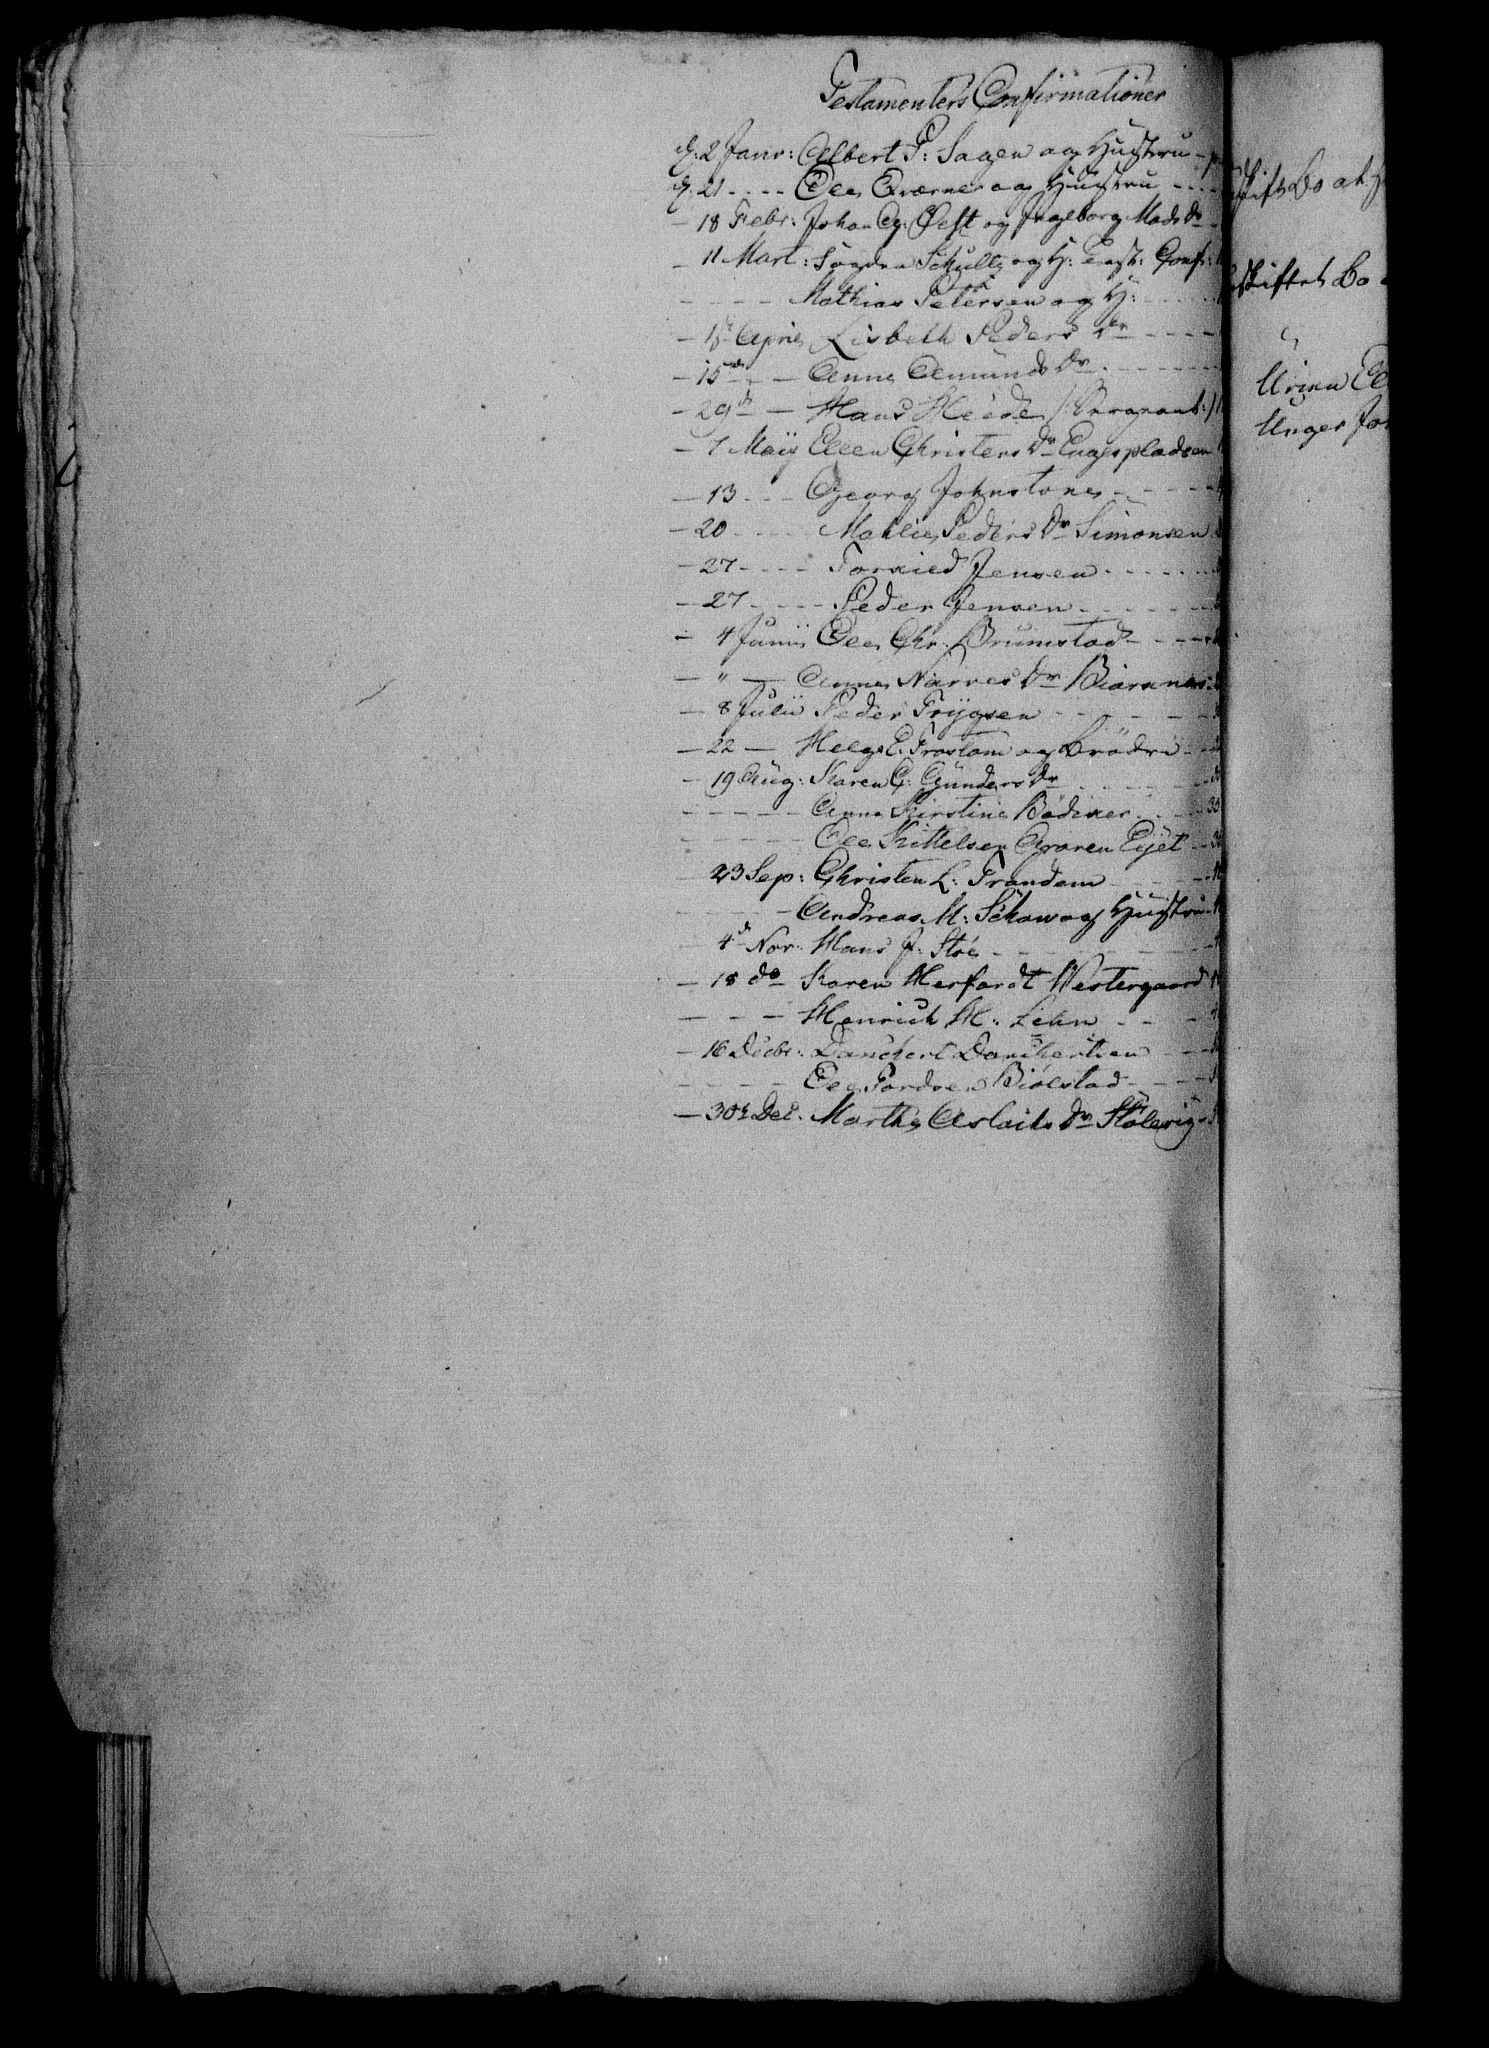 Testamenters Confirmationer
d. 2 Janv: Albert P: Sagen og Hustru
d. 21 - - - - Ole Qværner og Hustru - - - -
- 18 Febr: Johan Og: Ofst og Ingeborg Mads Dr
- 11 Mart: Schultz og H: Conf:
- - - - Mathias Petersen og H:
- 1st April Lisbeth Peders Dr - - - -
- 15de - Anne Amunds Dr
- 29de - Hans Heide
- 7 Maij Ellen Christens Dr Engespladsen
- 13 - - - Georg Johnstone
- 20 - - - - Mahlie Peders Dr Simonsen
- 27 - - - - Torkied Jensen
- 27 - - - - Peder Jensen
- 4 Junii Ole Chr. Brumstad
- " - Anne Narves Dr
- 8 Julii Peder Trygsen
- 22 - Helge E. Frostom og Brödre
- 19 Aug: Karen G: Gunders Dr
- - - - - Anne Kirstine Bödeker - - 30
- - - - - Ole Kittelsen Graren Eyet
23 Sep: Christen L: Trandem
- Andreas M: Schow og Hustru
4de Nov: Hans J: Stöe
- 18 do Karen Herfordt Westergaard
- - - Henrich H: Lehn
- 16 Decbr: Danckert Danckertsen
- - - - - Ole Tordsen Biölstad
- 30te Dec. Marthe Aslachs Dr Stölevig
Bo at
skiftet Bo
Urima
Unger